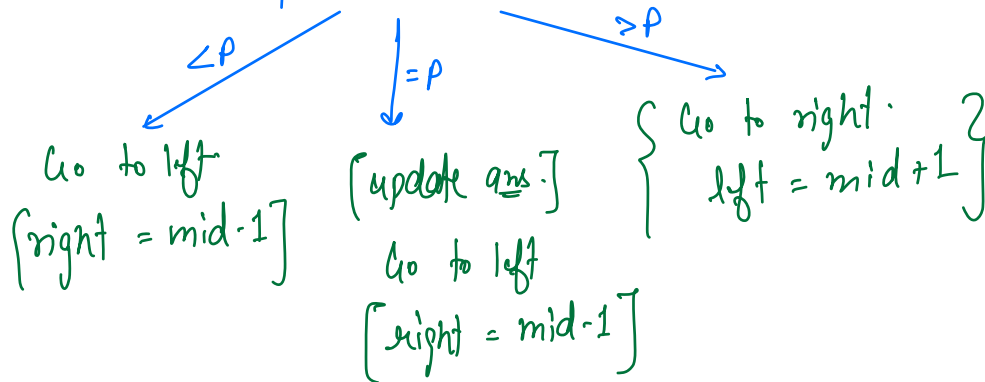 <P
=P
>P
Go to left.
[right = mid-1]
[update ans.]
Go to left
[right = mid-1]
{ Go to right.
left = mid+1 }